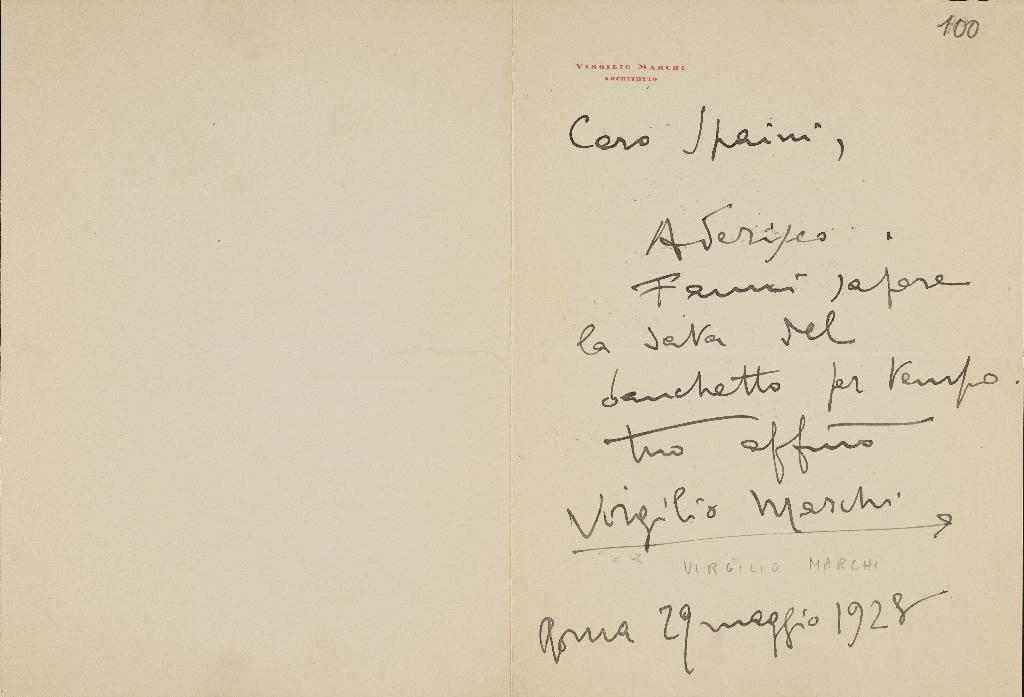 100
VIRGILIO MARCHI
ARCHITETTO
Caro Spaini,
Aderisco.
Fammi sapere
la data del
banchetto per tempo.
tuo affmo
Virgilio Marchi
VIRGILIO MARCHI
Roma 29 maggio 1928